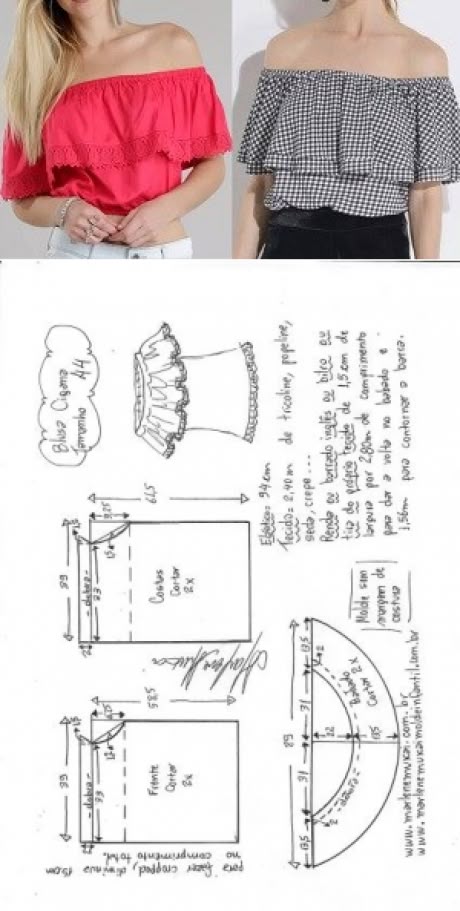 Blusa Cigana
Tamanho 44
Elástico= 94cm
Tecido= 2,40m de tricoline, popeline,
seda, crepe...
Renda ou bordado inglês ou bilro ou
tira do próprio tecido de 1,5cm de
largura por 2,80m de comprimento
para dar a volta no babado e
1,56m para contornar a barra.
61,5
39
- dobra -
33
Costas
Cortar
2x
58,5
39
- dobra -
33
Frente
Cortar
2x
para fazer cropped, diminua 15cm
no comprimento total.
Molde sem
margem de
costura
89
13,5
31
31
13,5
2
2
Babado
Cortar 2x
- dobra -
www.marlenemukai.com.br
www.marlenemukaimoldeinfantil.com.br